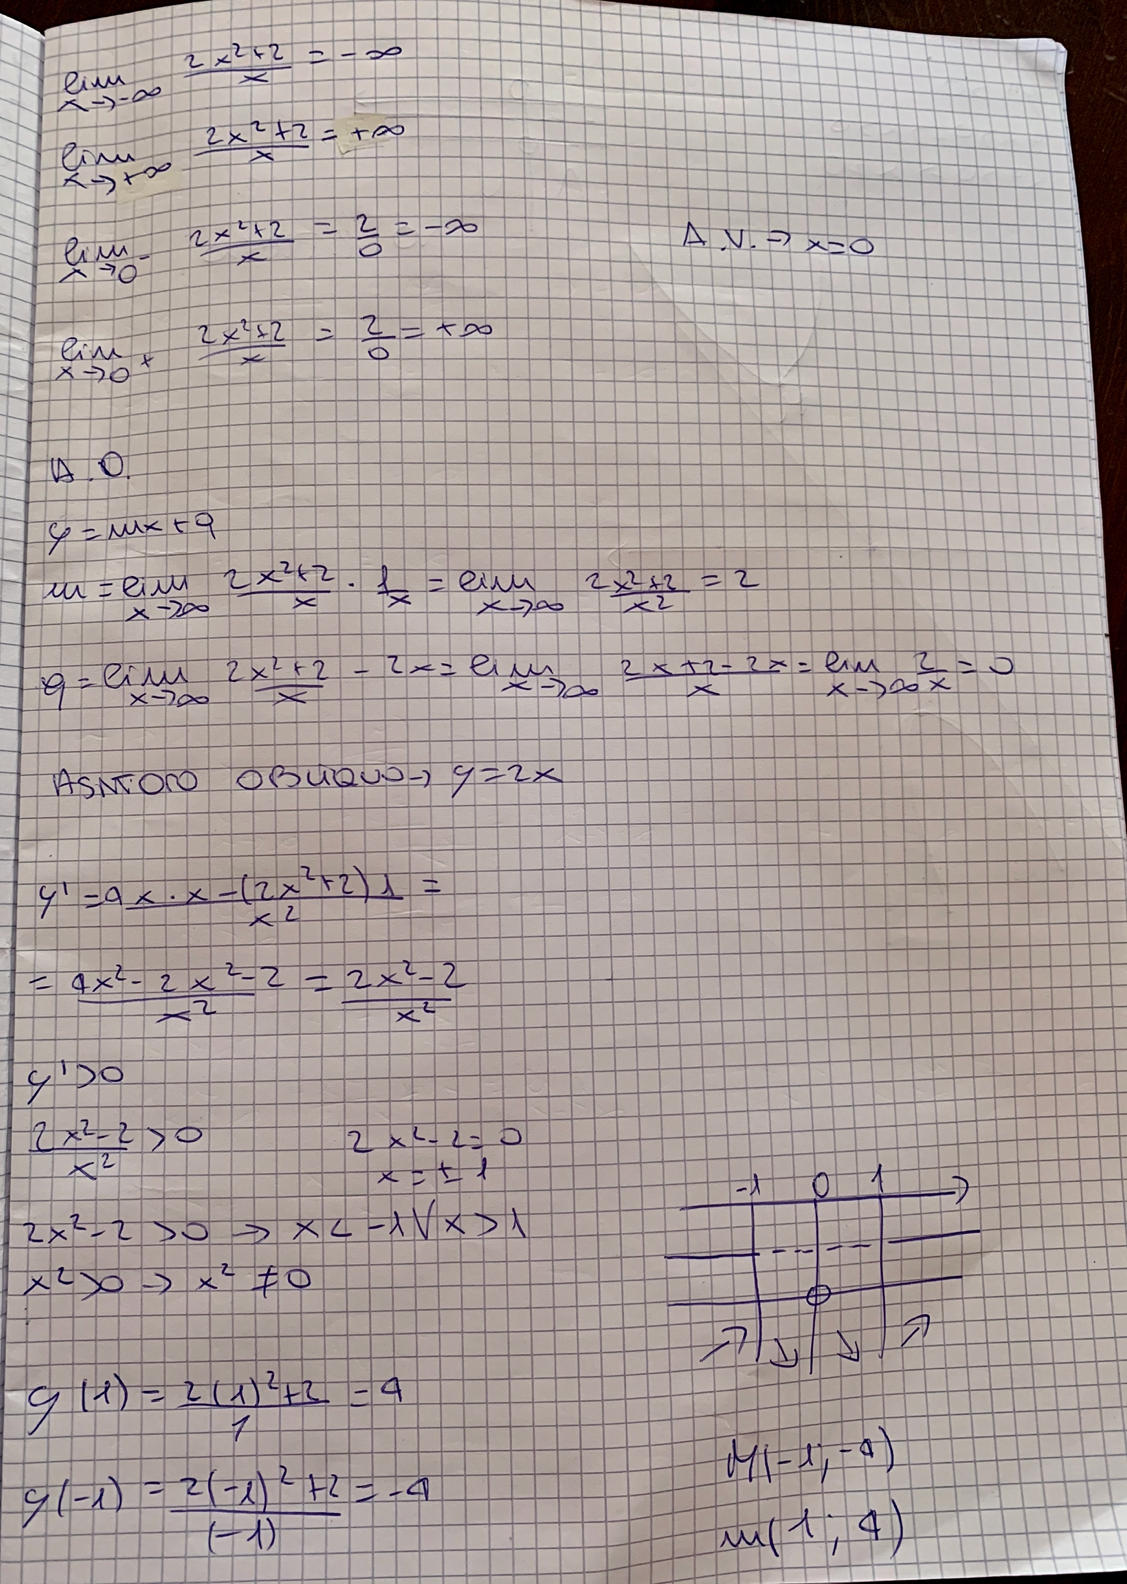 lim x→-∞ (2x²+2)/x = -∞
lim x→+∞ (2x²+2)/x = +∞
lim x→0⁻ (2x²+2)/x = 2/0 = -∞ A.V. → x=0
lim x→0⁺ (2x²+2)/x = 2/0 = +∞
A.O.
y = mx + q
m = lim x→∞ (2x²+2)/x · 1/x = lim x→∞ (2x²+2)/x² = 2
q = lim x→∞ (2x²+2)/x - 2x = lim x→∞ (2x+2-2x)/x = lim x→∞ 2/x = 0
ASINTOTO OBLIQUO → y = 2x
y' = (4x·x-(2x²+2)1)/x² =
= (4x²-2x²-2)/x² = (2x²-2)/x²
y'>0
(2x²-2)/x² > 0 2x²-2=0
x = ±1
-1 0 1
2x²-2 > 0 → x < -1 V x > 1
x² > 0 → x² ≠ 0
y(1) = (2(1)²+2)/1 = 4
y(-1) = (2(-1)²+2)/(-1) = -4
M(-1; -4)
m(1; 4)